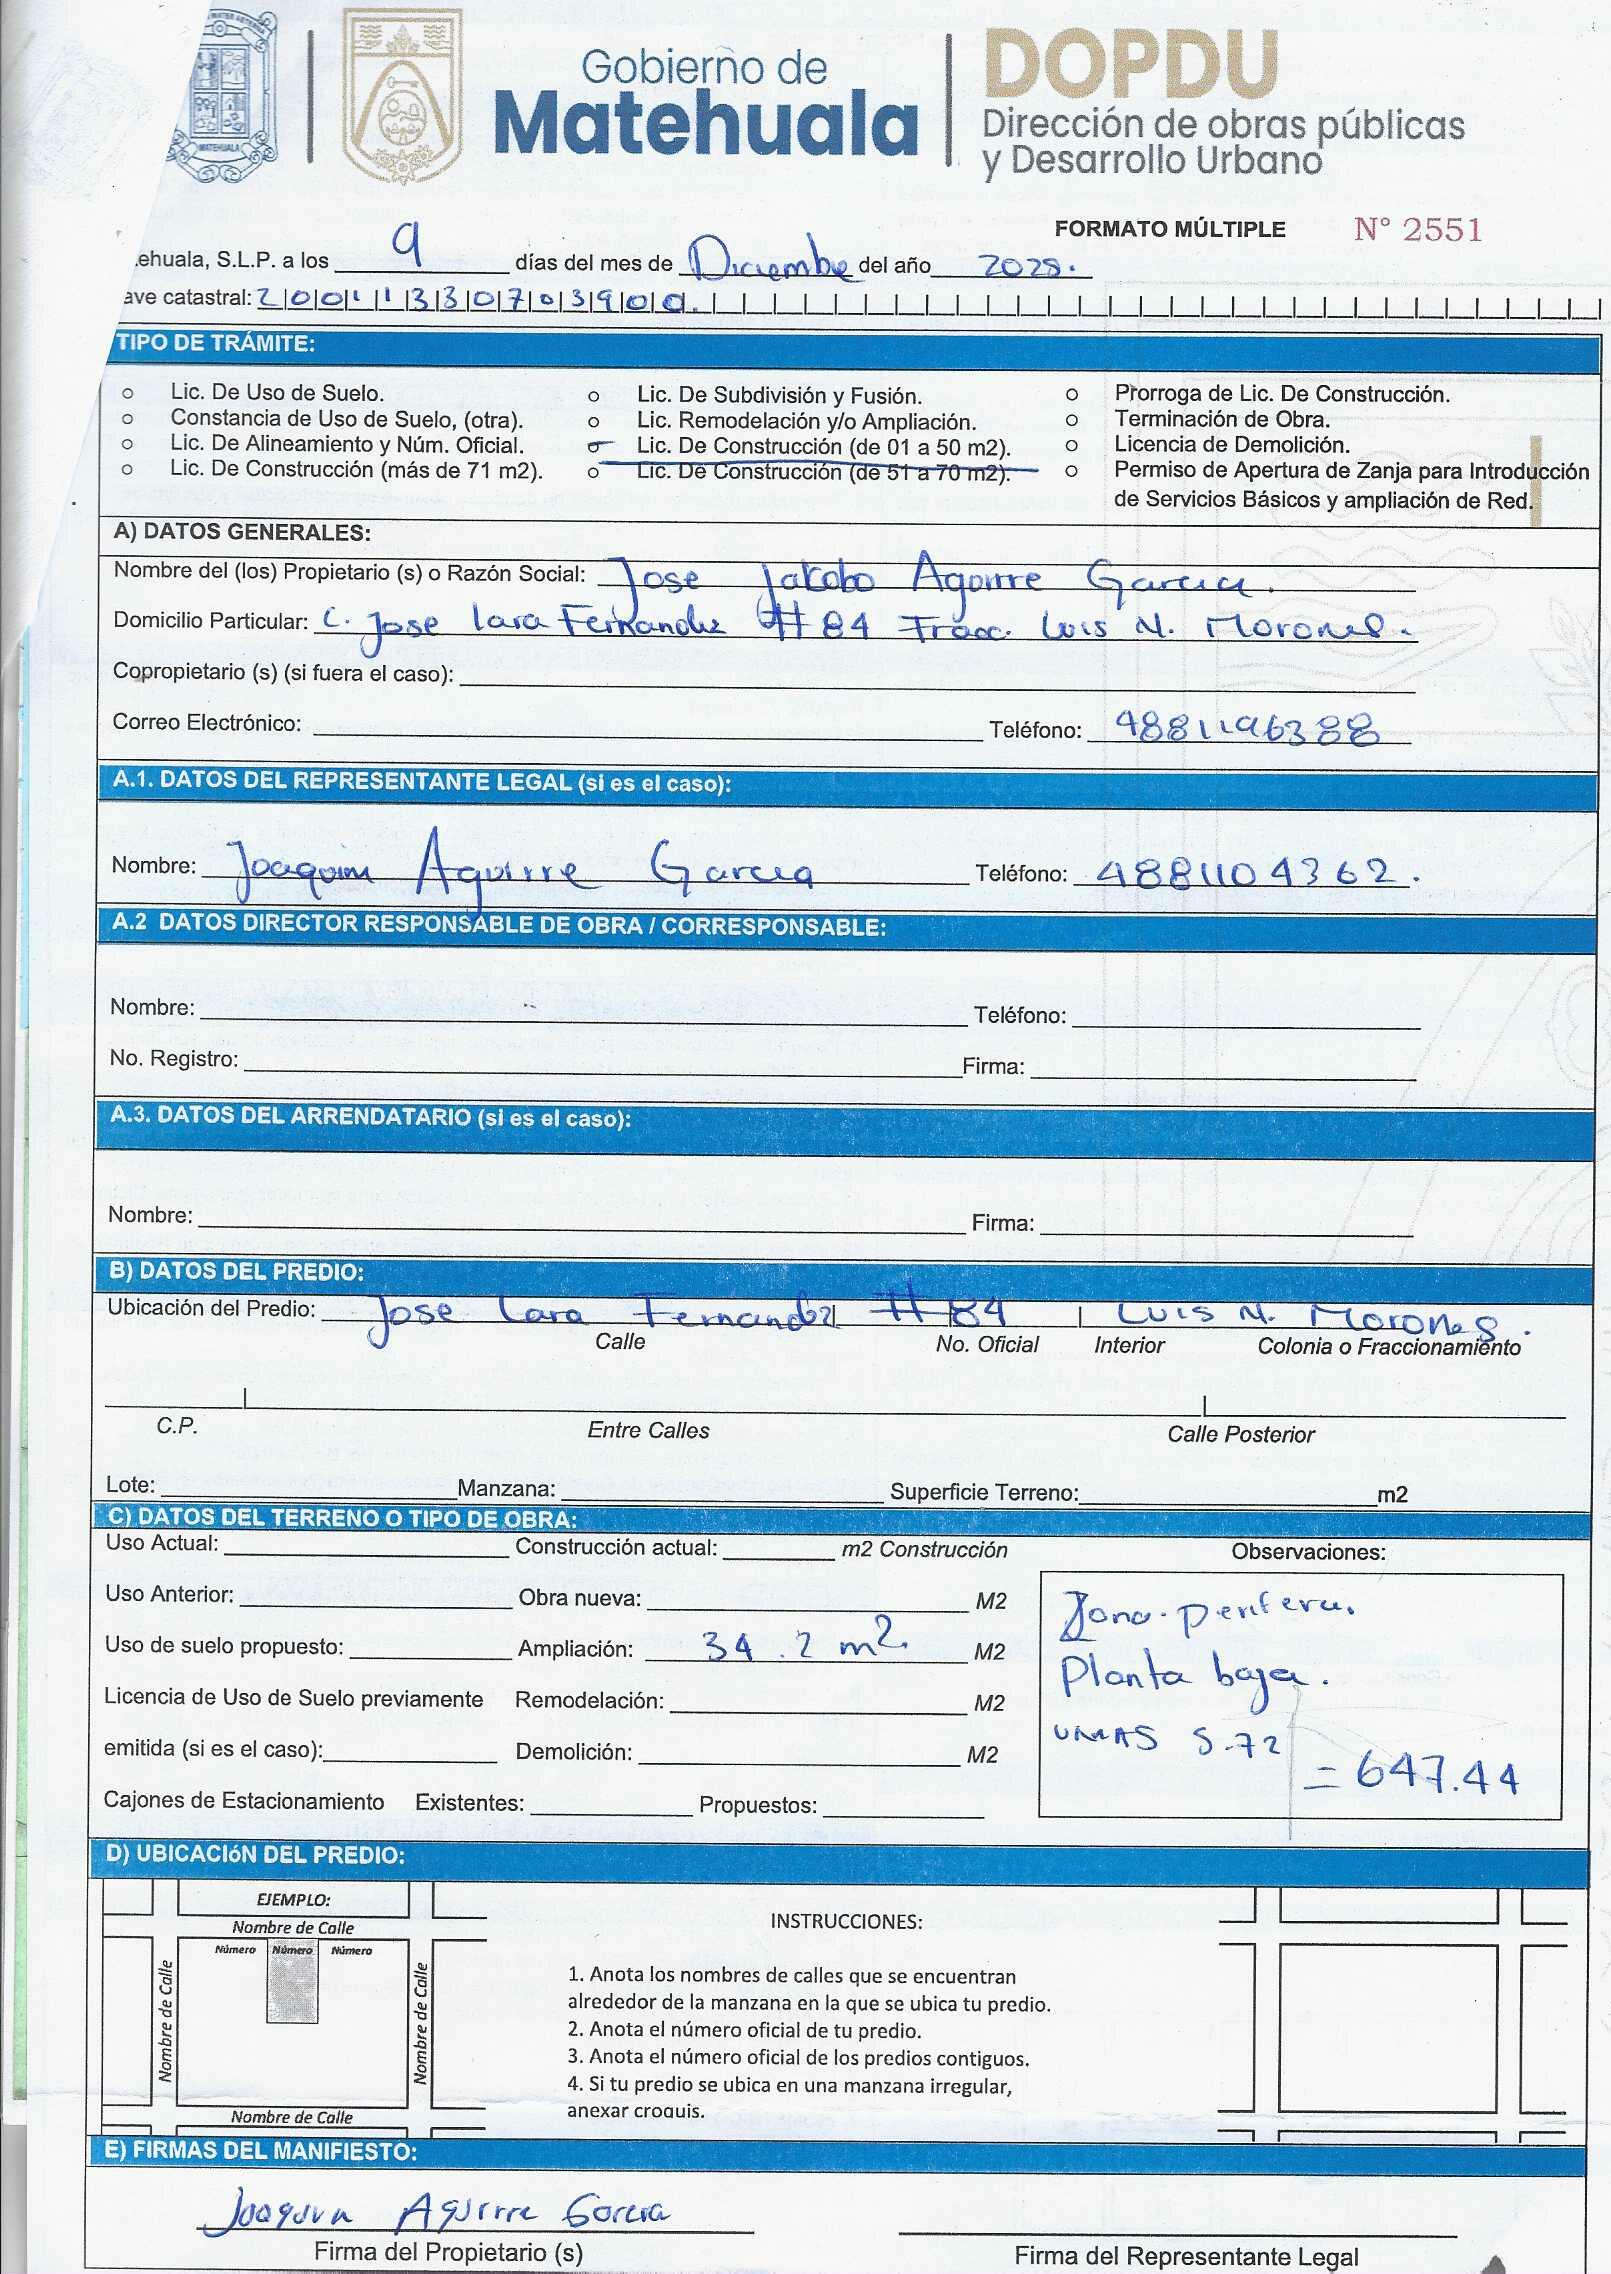 MATEHUALA
Gobierno de
Matehuala
DOPDU
Dirección de obras públicas
y Desarrollo Urbano
FORMATO MÚLTIPLE N° 2551
ehuala, S.L.P. a los 9 días del mes de Diciembe del año 2025.
ave catastral: 2|0|0|1|1|3|3|0|7|0|3|9|0|0.
TIPO DE TRÁMITE:
Lic. De Uso de Suelo.
Constancia de Uso de Suelo, (otra).
Lic. De Alineamiento y Núm. Oficial.
Lic. De Construcción (más de 71 m2).
Lic. De Subdivisión y Fusión.
Lic. Remodelación y/o Ampliación.
Lic. De Construcción (de 01 a 50 m2).
Lic. De Construcción (de 51 a 70 m2).
Prorroga de Lic. De Construcción.
Terminación de Obra.
Licencia de Demolición.
Permiso de Apertura de Zanja para Introducción
de Servicios Básicos y ampliación de Red.
A) DATOS GENERALES:
Nombre del (los) Propietario (s) o Razón Social: Jose Jakobo Aguirre Garcia.
Domicilio Particular: C. Jose Lara Fernandez #84 Fracc. Luis N. Morones.
Copropietario (s) (si fuera el caso):
Correo Electrónico: Teléfono: 4881196388
A.1. DATOS DEL REPRESENTANTE LEGAL (si es el caso):
Nombre: Joaquin Aguirre Garcia Teléfono: 4881104362.
A.2 DATOS DIRECTOR RESPONSABLE DE OBRA / CORRESPONSABLE:
Nombre: Teléfono:
No. Registro: Firma:
A.3. DATOS DEL ARRENDATARIO (si es el caso):
Nombre: Firma:
B) DATOS DEL PREDIO:
Ubicación del Predio: Jose Lara Fernandez #84 Luis N. Morones.
Calle No. Oficial Interior Colonia o Fraccionamiento
C.P. Entre Calles Calle Posterior
Lote: Manzana: Superficie Terreno: m2
C) DATOS DEL TERRENO O TIPO DE OBRA:
Uso Actual: Construcción actual: m2 Construcción Observaciones:
Uso Anterior: Obra nueva: M2
Uso de suelo propuesto: Ampliación: 34.2 m2. M2
Licencia de Uso de Suelo previamente Remodelación: M2
emitida (si es el caso): Demolición: M2
Cajones de Estacionamiento Existentes: Propuestos:
Zona periferu.
Planta baja.
UMAS 5.72
= 647.44
D) UBICACIóN DEL PREDIO:
EJEMPLO:
Nombre de Calle
Número Número Número
Nombre de Calle
Nombre de Calle
Nombre de Calle
INSTRUCCIONES:
1. Anota los nombres de calles que se encuentran
alrededor de la manzana en la que se ubica tu predio.
2. Anota el número oficial de tu predio.
3. Anota el número oficial de los predios contiguos.
4. Si tu predio se ubica en una manzana irregular,
anexar croquis.
E) FIRMAS DEL MANIFIESTO:
Joaquin Aguirre Garcia
Firma del Propietario (s) Firma del Representante Legal